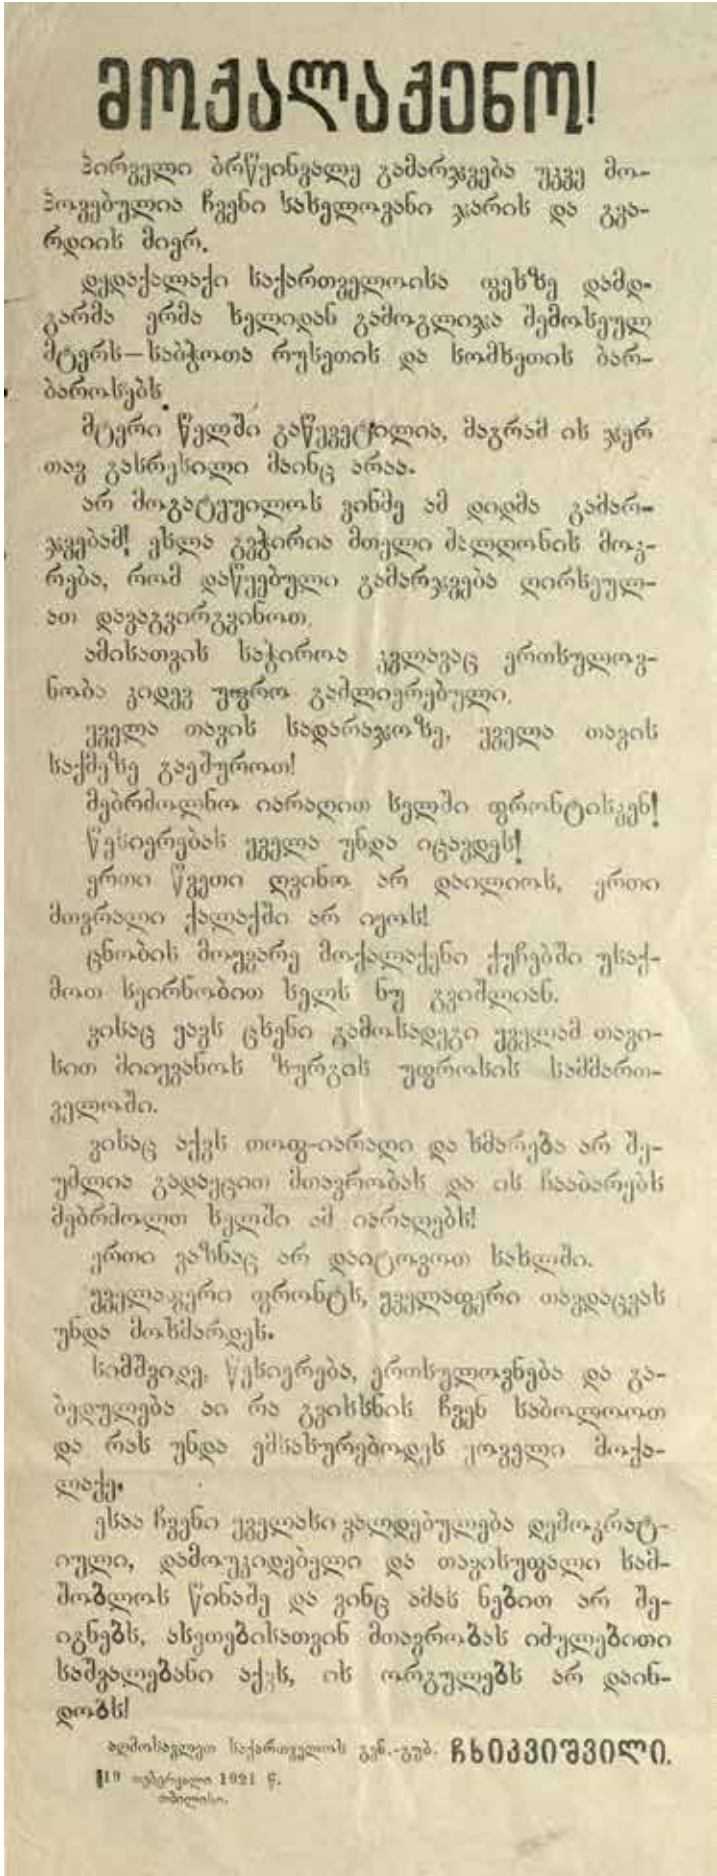 მოქალაქენო!
პირველი ბრწყინვალე გამარჯვება უკვე მო-
პოვებულია ჩვენი სახელოვანი ჯარის და გვა-
რდიის მიერ.
დედაქალაქი საქართველოისა ფეხზე დამდ-
გარმა ერმა ხელიდან გამოგლიჯა შემოსეულ
მტერს—საბჭოთა რუსეთის და სომხეთის ბარ-
ბაროსებს.
მტერი წელში გაწყვეტილია, მაგრამ ის ჯერ
თავ გასრესილი მაინც არაა.
არ მოგატყუილოს ვინმე ამ დიდმა გამარ-
ჯვებამ! ეხლა გვჭირია მთელი ძალღონის მოგ-
რება, რომ დაწყებული გამარჯვება ღირსეულ-
ათ დავაგვირგვინოთ.
ამისათვის საჭიროა კვლავაც ერთსულოვ-
ნობა კიდევ უფრო გაძლიერებული.
ყველა თავის სადარაჯოზე, ყველა თავის
საქმეზე გაეშუროთ!
მებრძოლნო იარაღით ხელში ფრონტისკენ!
წესიერებას ყველა უნდა იცავდეს!
ერთი წვეთი ღვინო არ დაილიოს, ერთი
მთვრალი ქალაქში არ იყოს!
ცნობის მოყვარე მოქალაქენი ქუჩებში უსაქ-
მოთ სეირნობით ხელს ნუ გვიშლიან.
ვისაც ყავს ცხენი გამოსადეგი ყველამ თავი-
სით მიიყვანოს ზურგის უფროსის სამმართ-
ველოში.
ვისაც აქვს თოფ-იარაღი და ხმარება არ შე-
უძლია გადაეცით მთავრობას და ის ჩააბარებს
მებრძოლთ ხელში ამ იარაღებს!
ერთი ვაზნაც არ დაიტოვოთ სახლში.
ყველაფერი ფრონტს, ყველაფერი თავდაცვას
უნდა მოხმარდეს.
სიმშვიდე, წესიერება, ერთსულოვნება და გა-
ბედულება აი რა გვიხსნის ჩვენ საბოლოოთ
და რას უნდა ემსახურებოდეს ყოველი მოქა-
ლაქე.
ესაა ჩვენი ყველასი ვალდებულება დემოკრატ-
იული, დამოუკიდებელი და თავისუფალი სამ-
შობლოს წინაშე და ვინც ამას ნებით არ შე-
იგნებს, ასეთებისათვინ მთავრობას იძულებითი
საშვალებანი აქვს, ის ორგულებს არ დაინ-
დობს!
აღმოსავლეთ საქართველოს გენ.-გუბ. ჩხიკვიშვილი.
19 თებერვალი 1921 წ.
თბილისი.